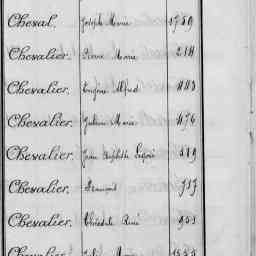 Cheval. Joseph Marie 1789
Chevalier. Pierre Marie 218
Chevalier. Eugène Alfred 443
Chevalier. Julien Marie 476
Chevalier. Jean Baptiste 489
Chevalier. François 757
Chevalier. René 951
Chevalier. Marie